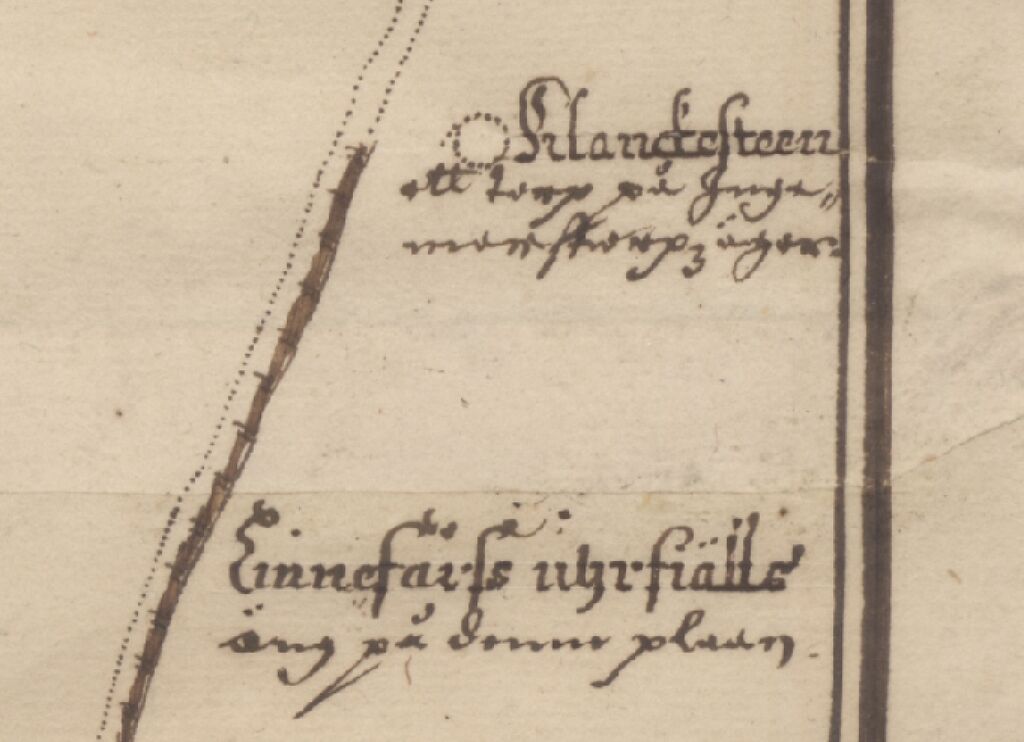 Klanckesteen
ett torp på Inge=
marstorpz ägor.
Linnefärss uhrfiälls
äng på denne plaan.